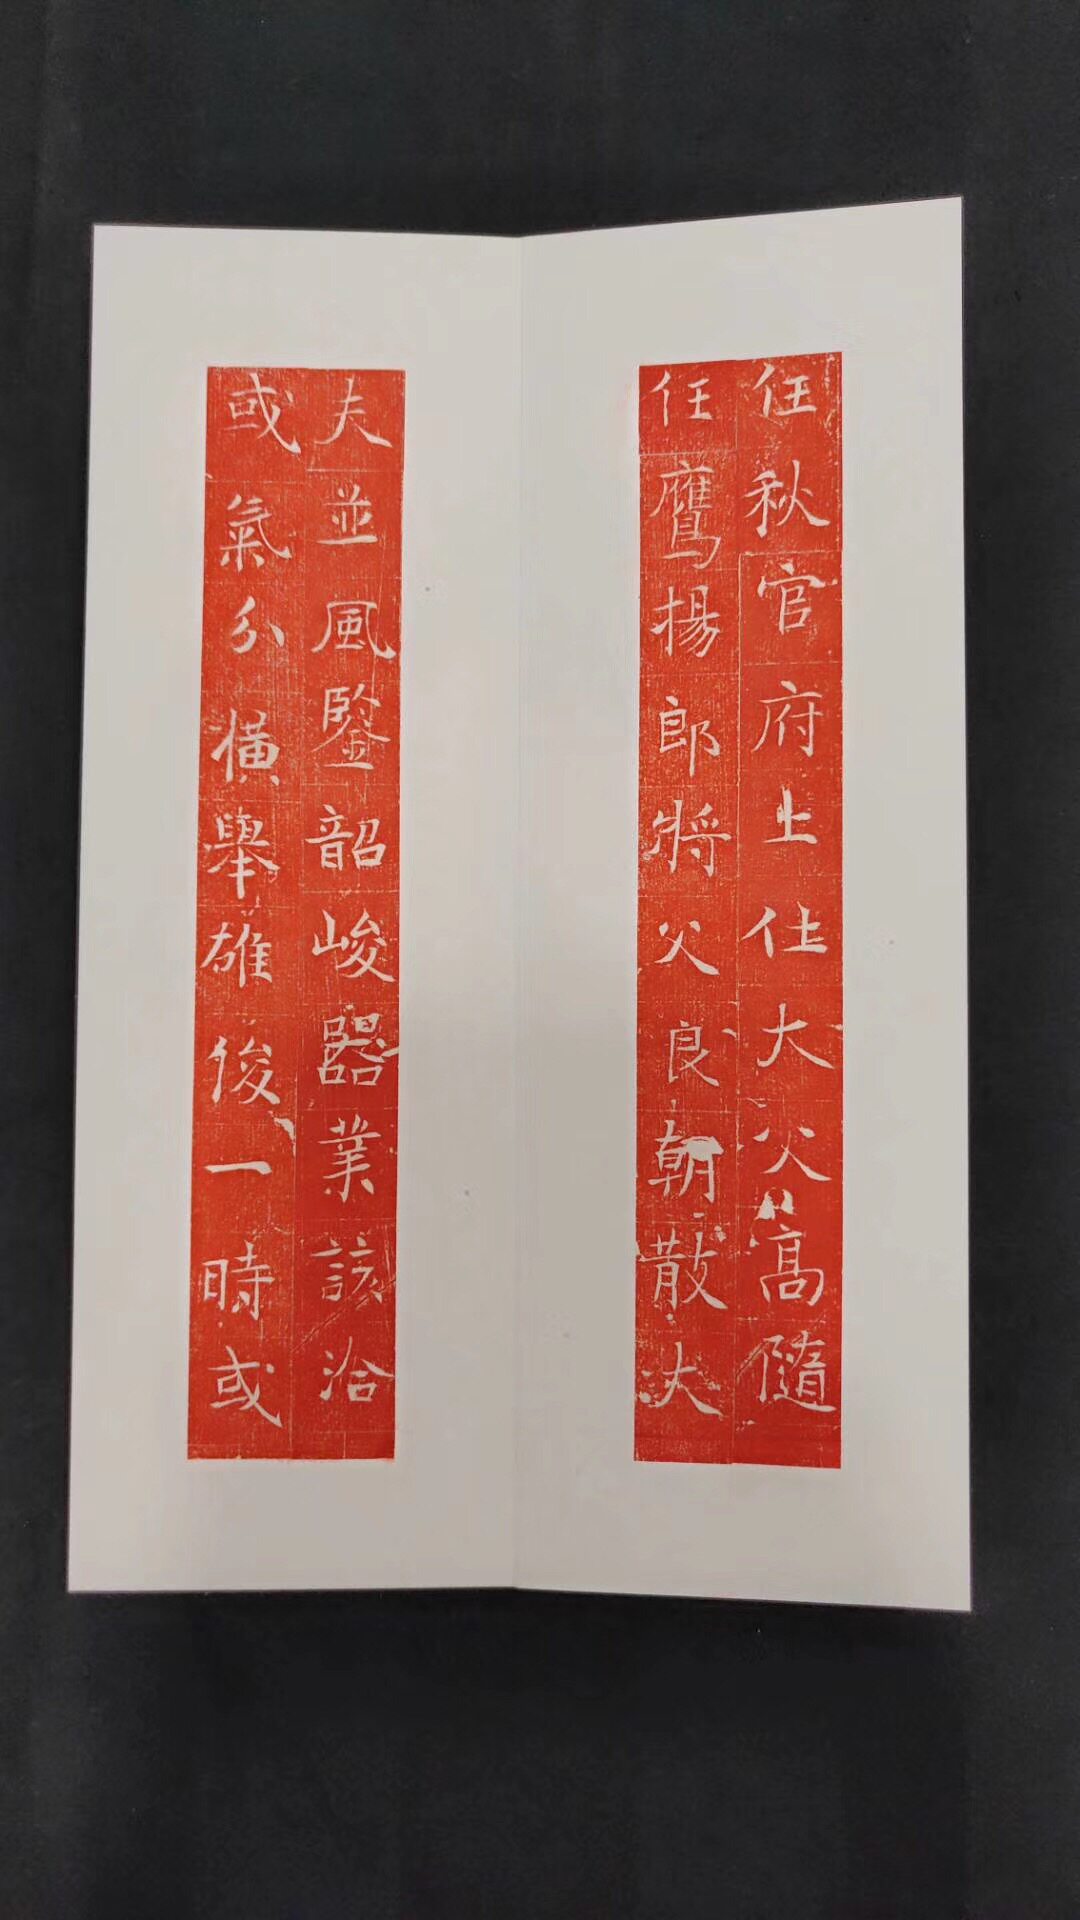 任秋官府上仕大父高隨
任鷹揚郎將父良朝散大
夫並風鑒韶峻器業該洽
或氣分橫舉雄俊一時或